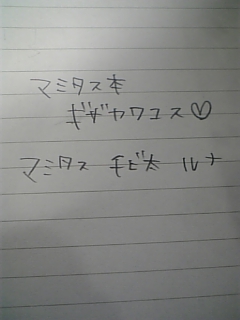 マミタス本
ギザカワユス♡
マミタス モビ太 ルナ